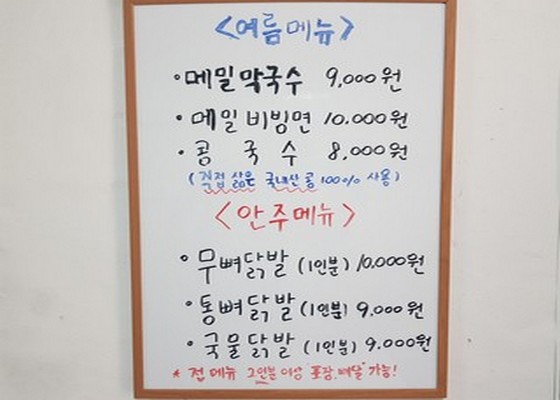 <여름메뉴>
·메밀막국수 9,000원
·메밀비빔면 10,000원
·콩국수 8,000원
(직접 삶은 국내산 콩 100% 사용)
<안주메뉴>
·무뼈닭발 (1인분) 10,000원
·통뼈닭발 (1인분) 9,000원
·국물닭발 (1인분) 9,000원
* 전 메뉴 2인분 이상 "포장, 배달" 가능!